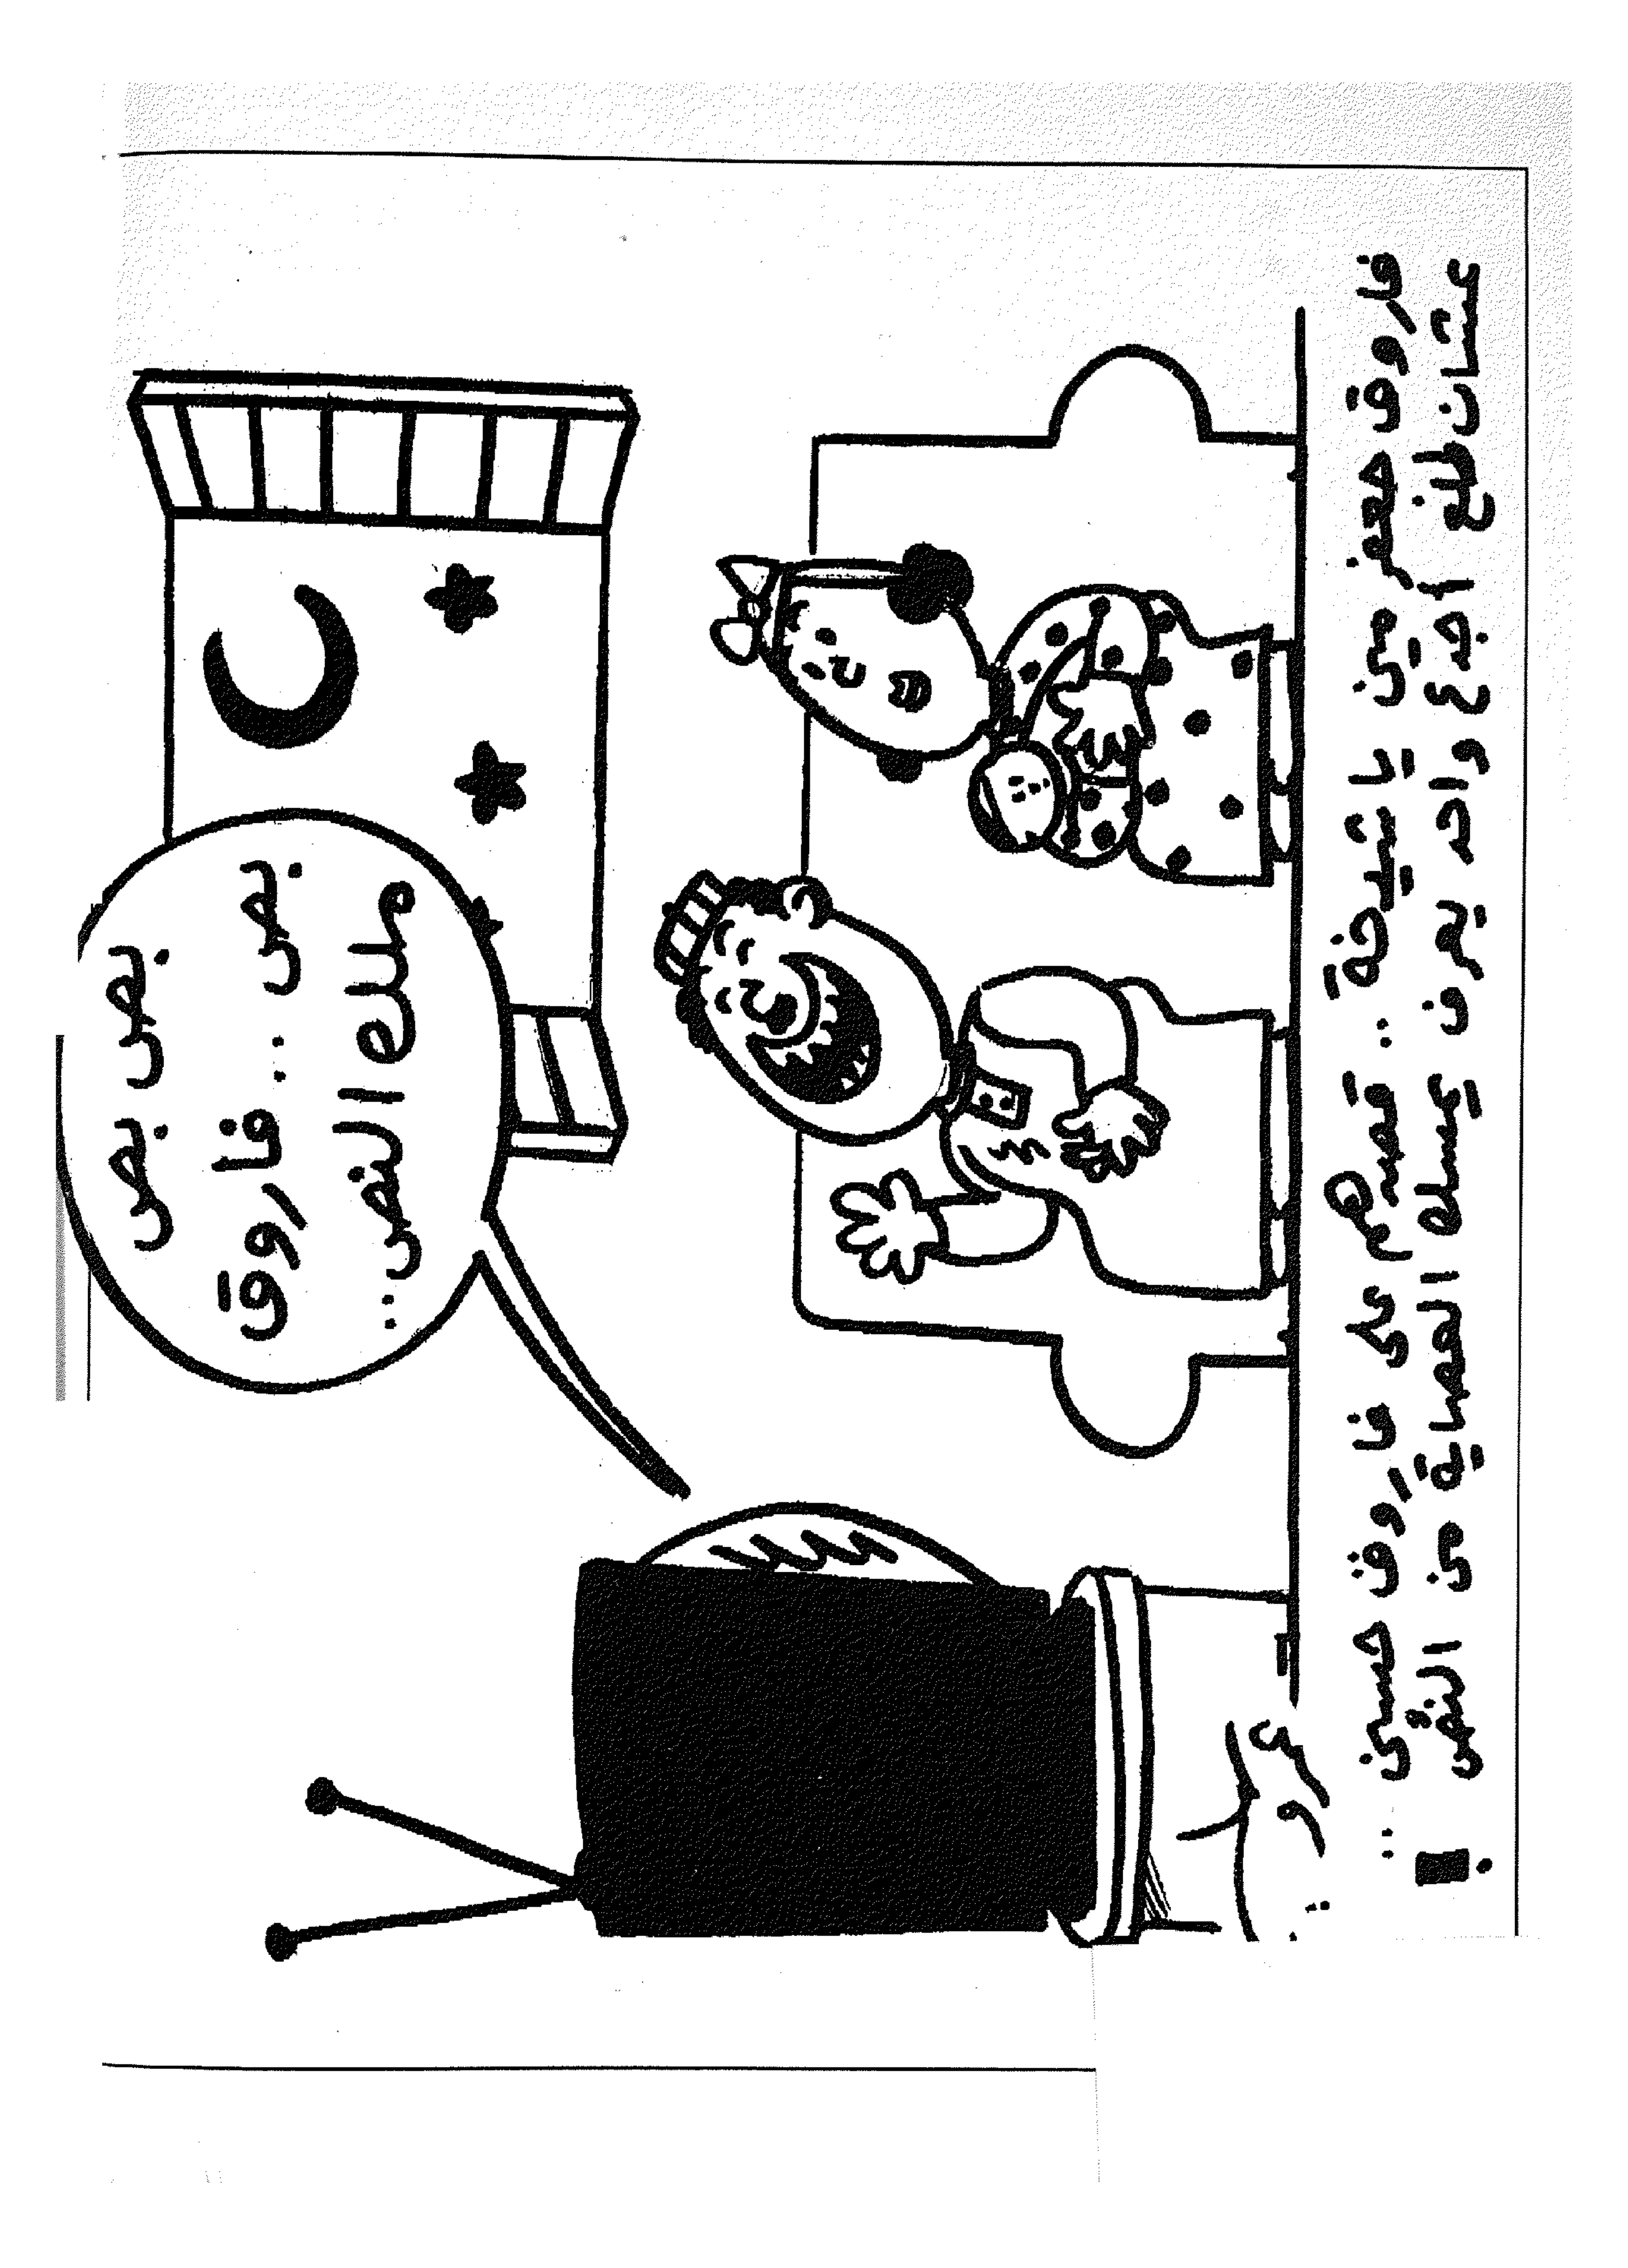 بص بص
بص .. فاروق
ملك النص ..
فاروق جعفر مين يا شيخة .. قصدهم على فاروق حسنى ..
عشان طلع أجدع واحد يعرف يمسك العصاية من النُص !